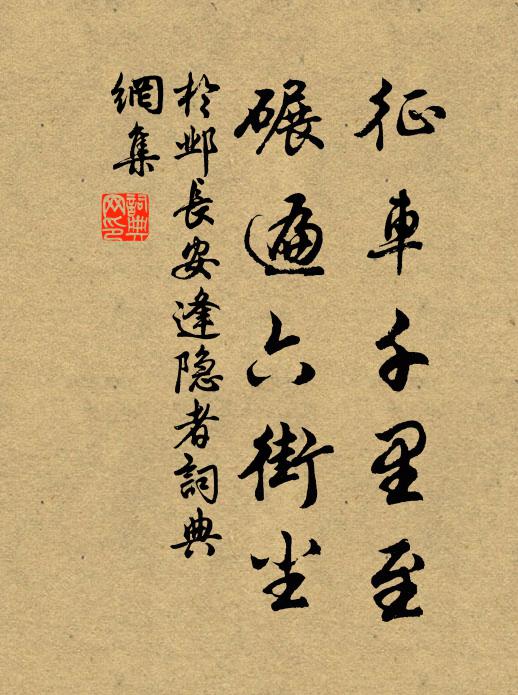 征車千里至
碾遍六街尘
於邺長安逢隐者詞典
網集
詞典
网印